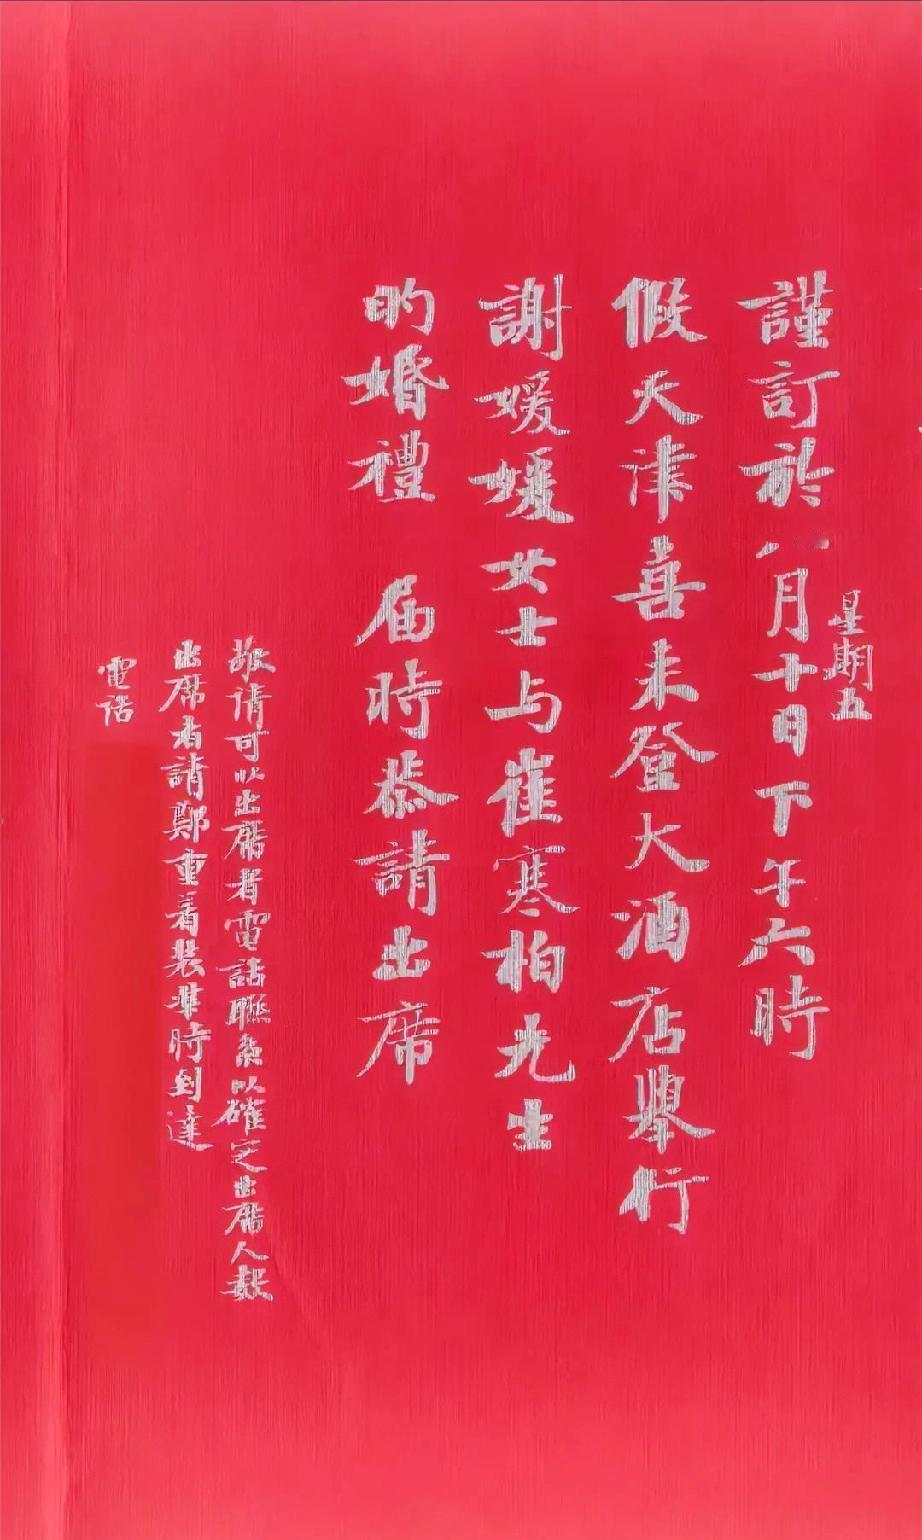 謹訂於八月十日下午六時
星期五
假天津喜来登大酒店舉行
謝媛媛女士与崔寒柏先生
的婚禮 届時恭請出席
敬请可以出席者電話聯系以確定出席人数
出席者請鄭重着装準時到達
電话